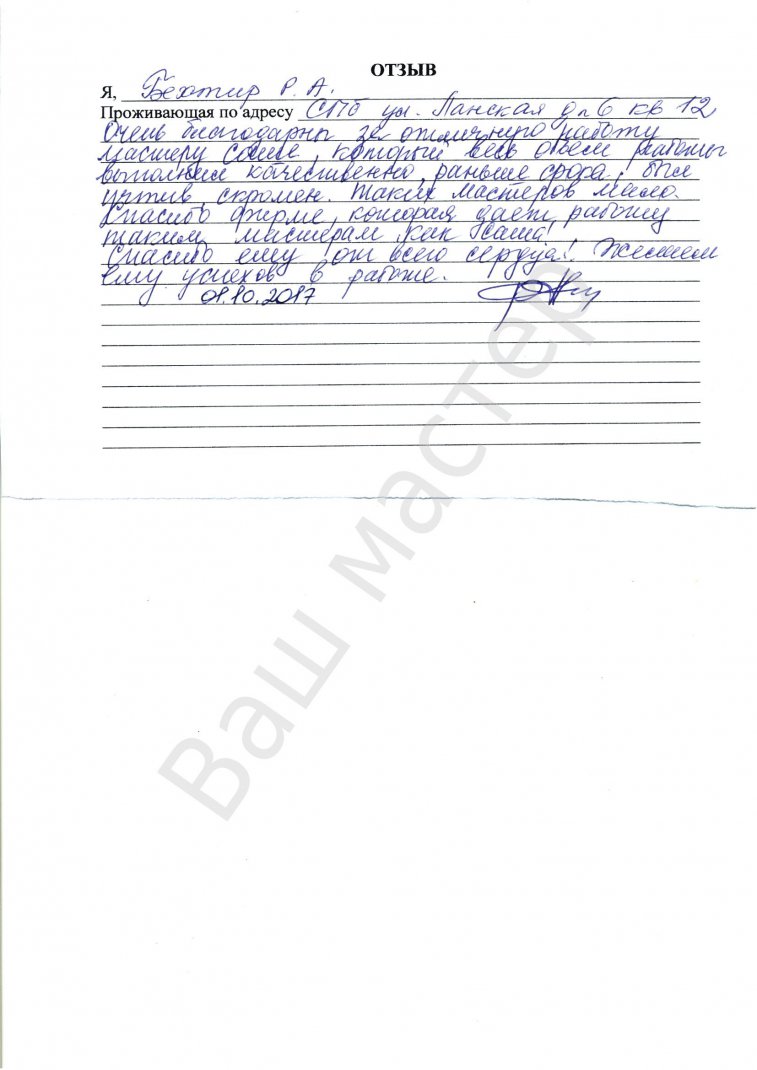 ОТЗЫВ
Я, Бехтир Р. А.
Проживающая по адресу СПб ул. Панская д 6 кв 12
Очень благодарны за отличную работу
мастеру Саше, который весь объем работы
выполнил качественно, раньше срока, был
учтив, скромен. Таких мастеров мало.
Спасибо фирме, которая даёт работу
таким мастерам как Саша!
Спасибо ему от всего сердца! Желаем
ему успехов в работе.
01.10.2017
Ваш мастер